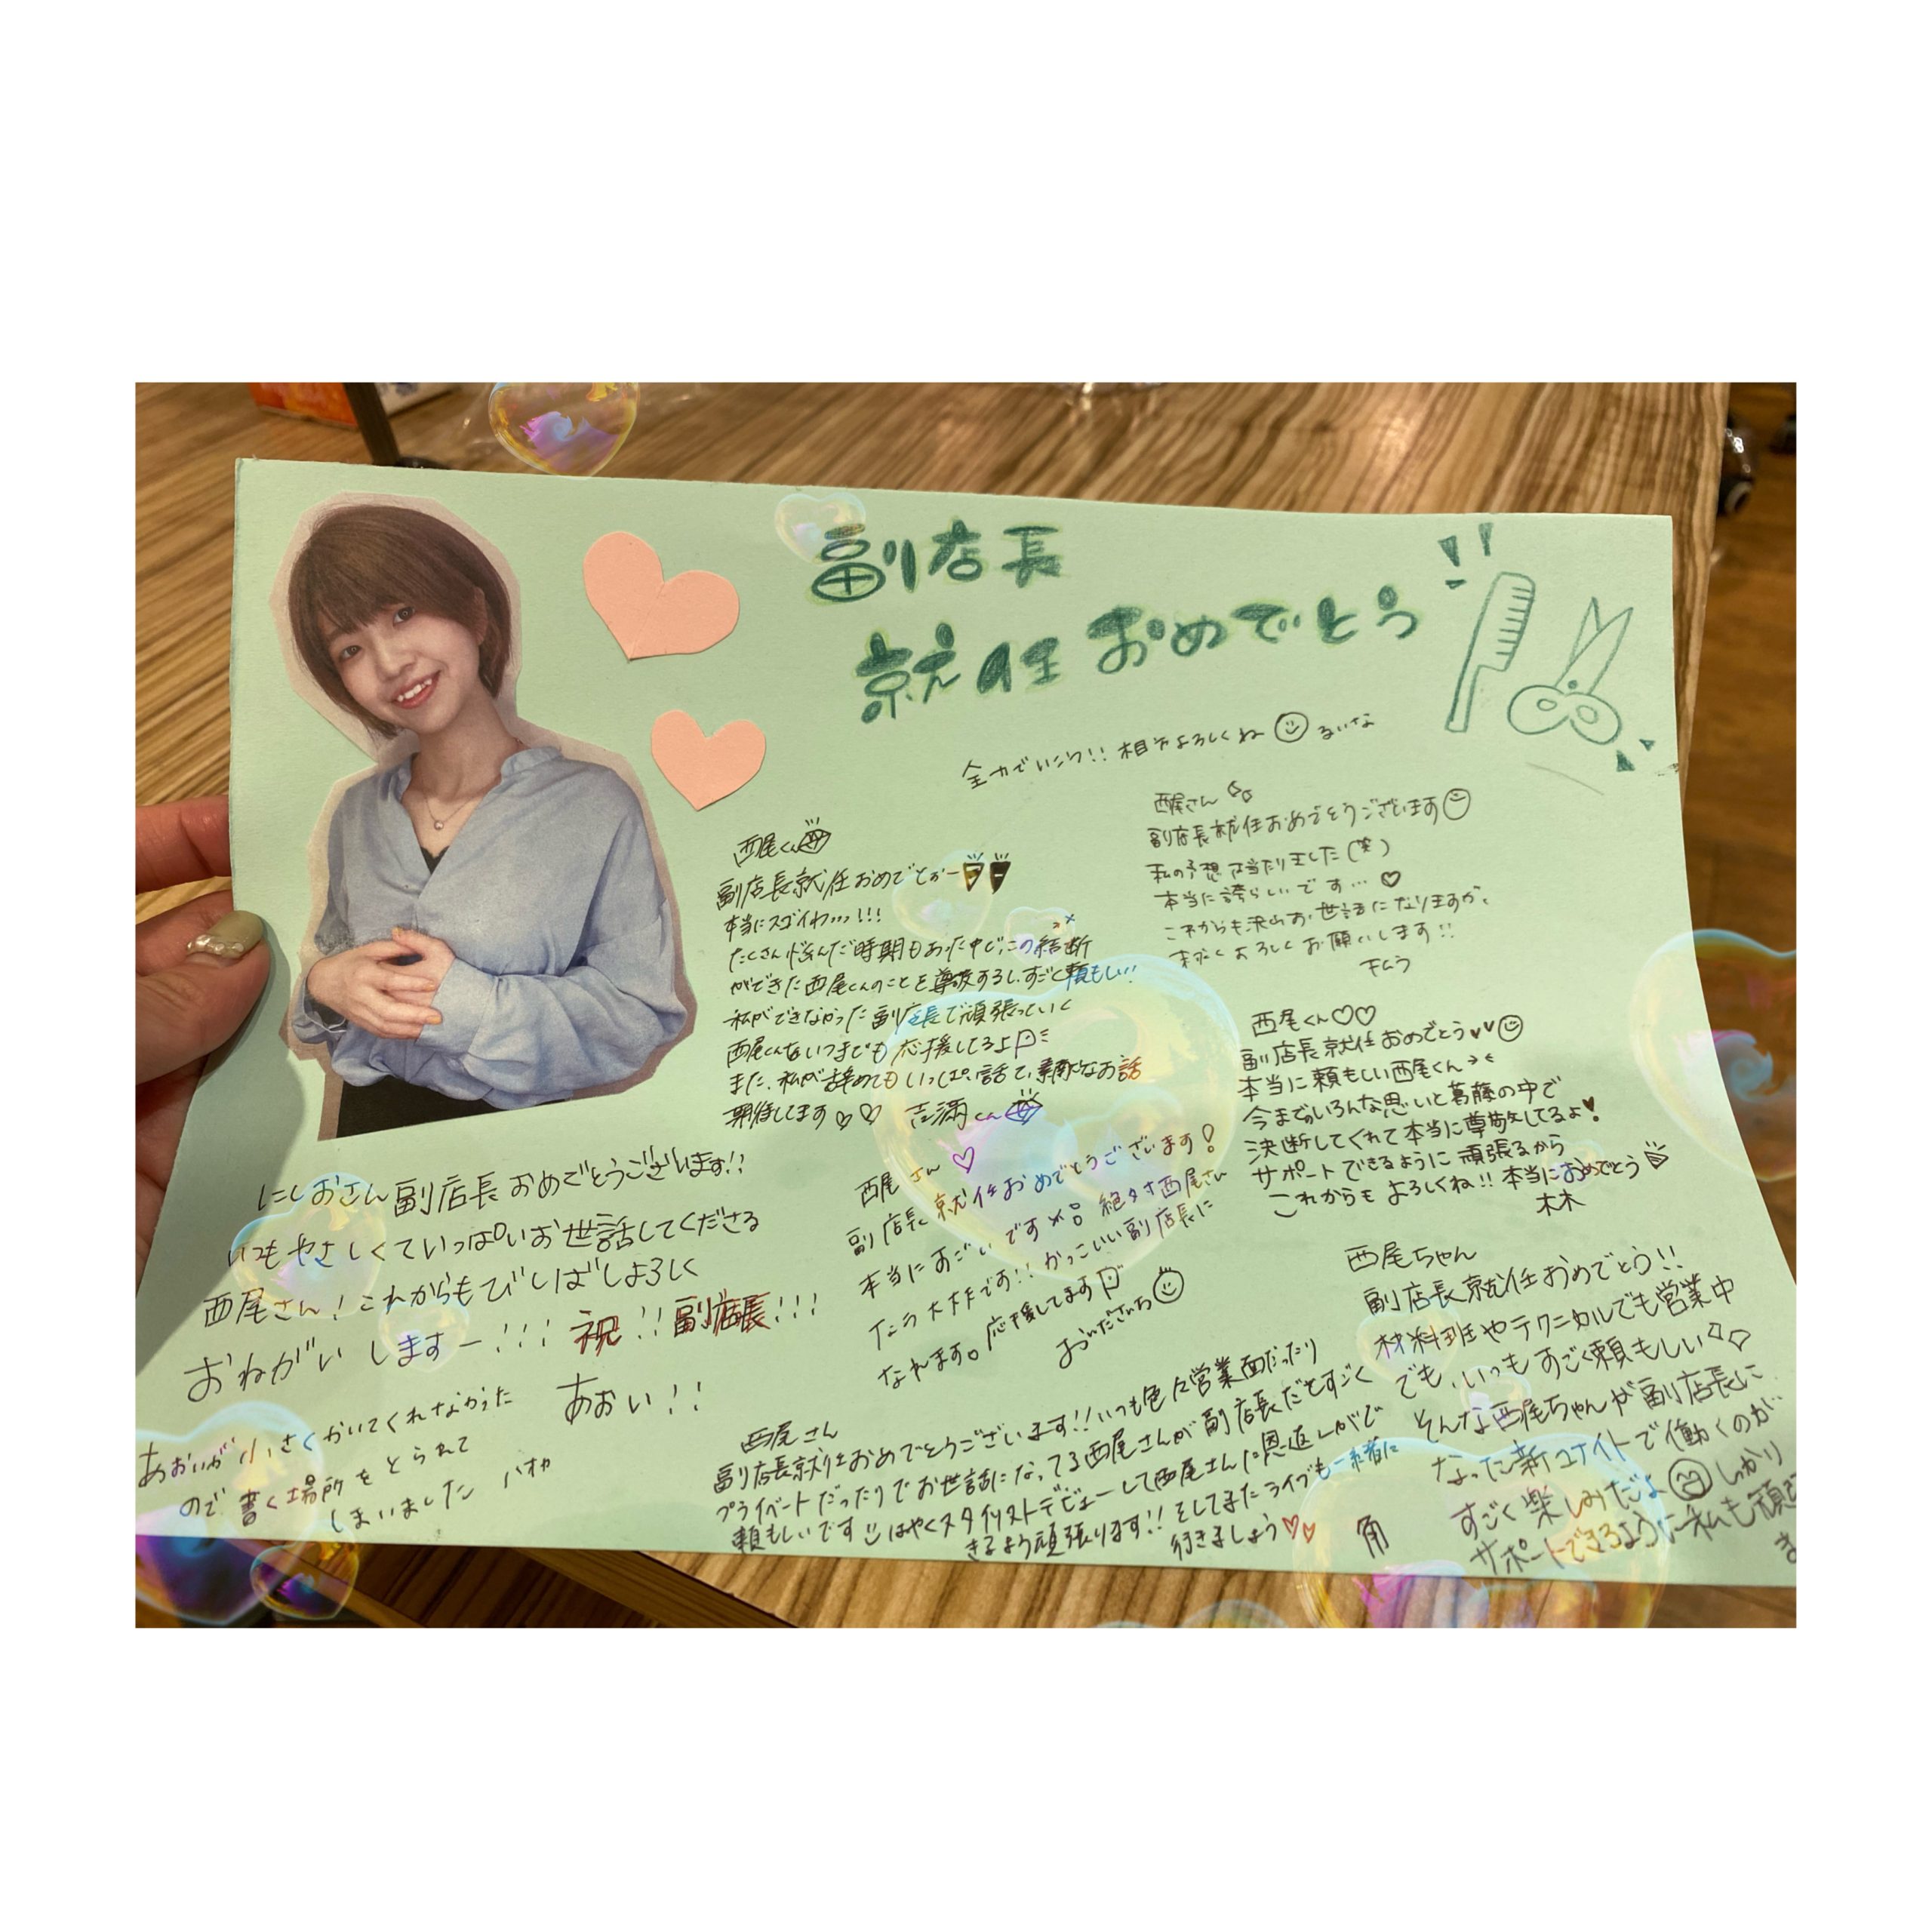 副店長
就任おめでとう
全力でいこう!! 相方よろしくね るいな
西尾くん
副店長就任おめでとぉー
本当にスゴイわ...!!!
たくさん悩んだ時期もあった中で、この結断
ができた西尾くんのことを尊敬するし、すごく頼もしい!!
私ができなかった副店長で頑張っていく
西尾くんをいつまでも応援してるよ
また、私が辞めてもいっぱい話て、素敵なお話
期待してます♡♡ 吉満くん
西尾さん
副店長就任おめでとうございます
私の予想 当たりました(笑)
本当に誇らしいです...♡
これからも沢山お世話になりますが、
よろしくお願いします!!
西尾くん♡♡
副店長就任おめでとう♥♥
本当に頼もしい西尾くん
今までのいろんな思いと葛藤の中で
決断してくれて本当に尊敬してるよ♥
サポートできるように頑張るから
これからもよろしくね!! 本当におめでとう
にしおさん副店長おめでとうございます!!
いつもやさしくていっぱいお世話してくださる
西尾さん!これからもびしばしよろしく
おねがいしますー!!! 祝!!副店長!!!
あおい!!
あおいが小さくかいてくれなかった
ので書く場所をとられて
しまいました
西尾さん♡
副店長就任おめでとうございます!
本当にすごいです 絶対西尾さん
なら大丈夫です!! かっこいい副店長に
なれます。応援してます
西尾さん
副店長就任おめでとうございます!!いつも色々営業面だったり
プライベートだったりでお世話になってる西尾さんが副店長だとすごく
頼もしいです はやくスタイリストデビューして西尾さんに恩返しがで
きるよう頑張ります!! そしてまたライブも一緒に
行きましょう♡♡ 角
西尾ちゃん
副店長就任おめでとう!!
材料班やテクニカルでも営業中
でも、いつもすごく頼もしい
そんな西尾ちゃんが副店長に
なった新ユナイトで働くのが
すごく楽しみだよ しっかり
サポートできるように私も頑張
ま